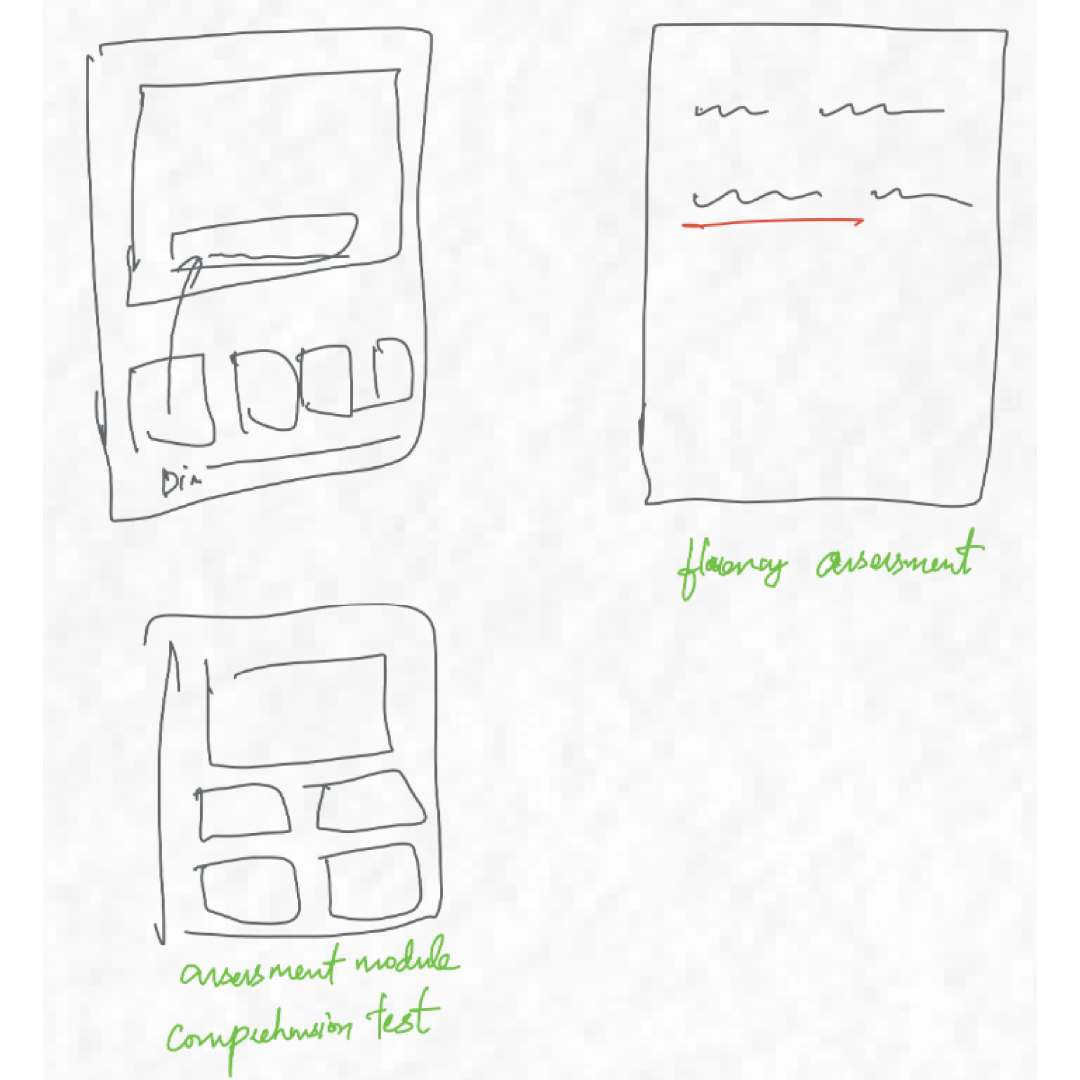 Din
fluency assessment
assessment module
comprehension test